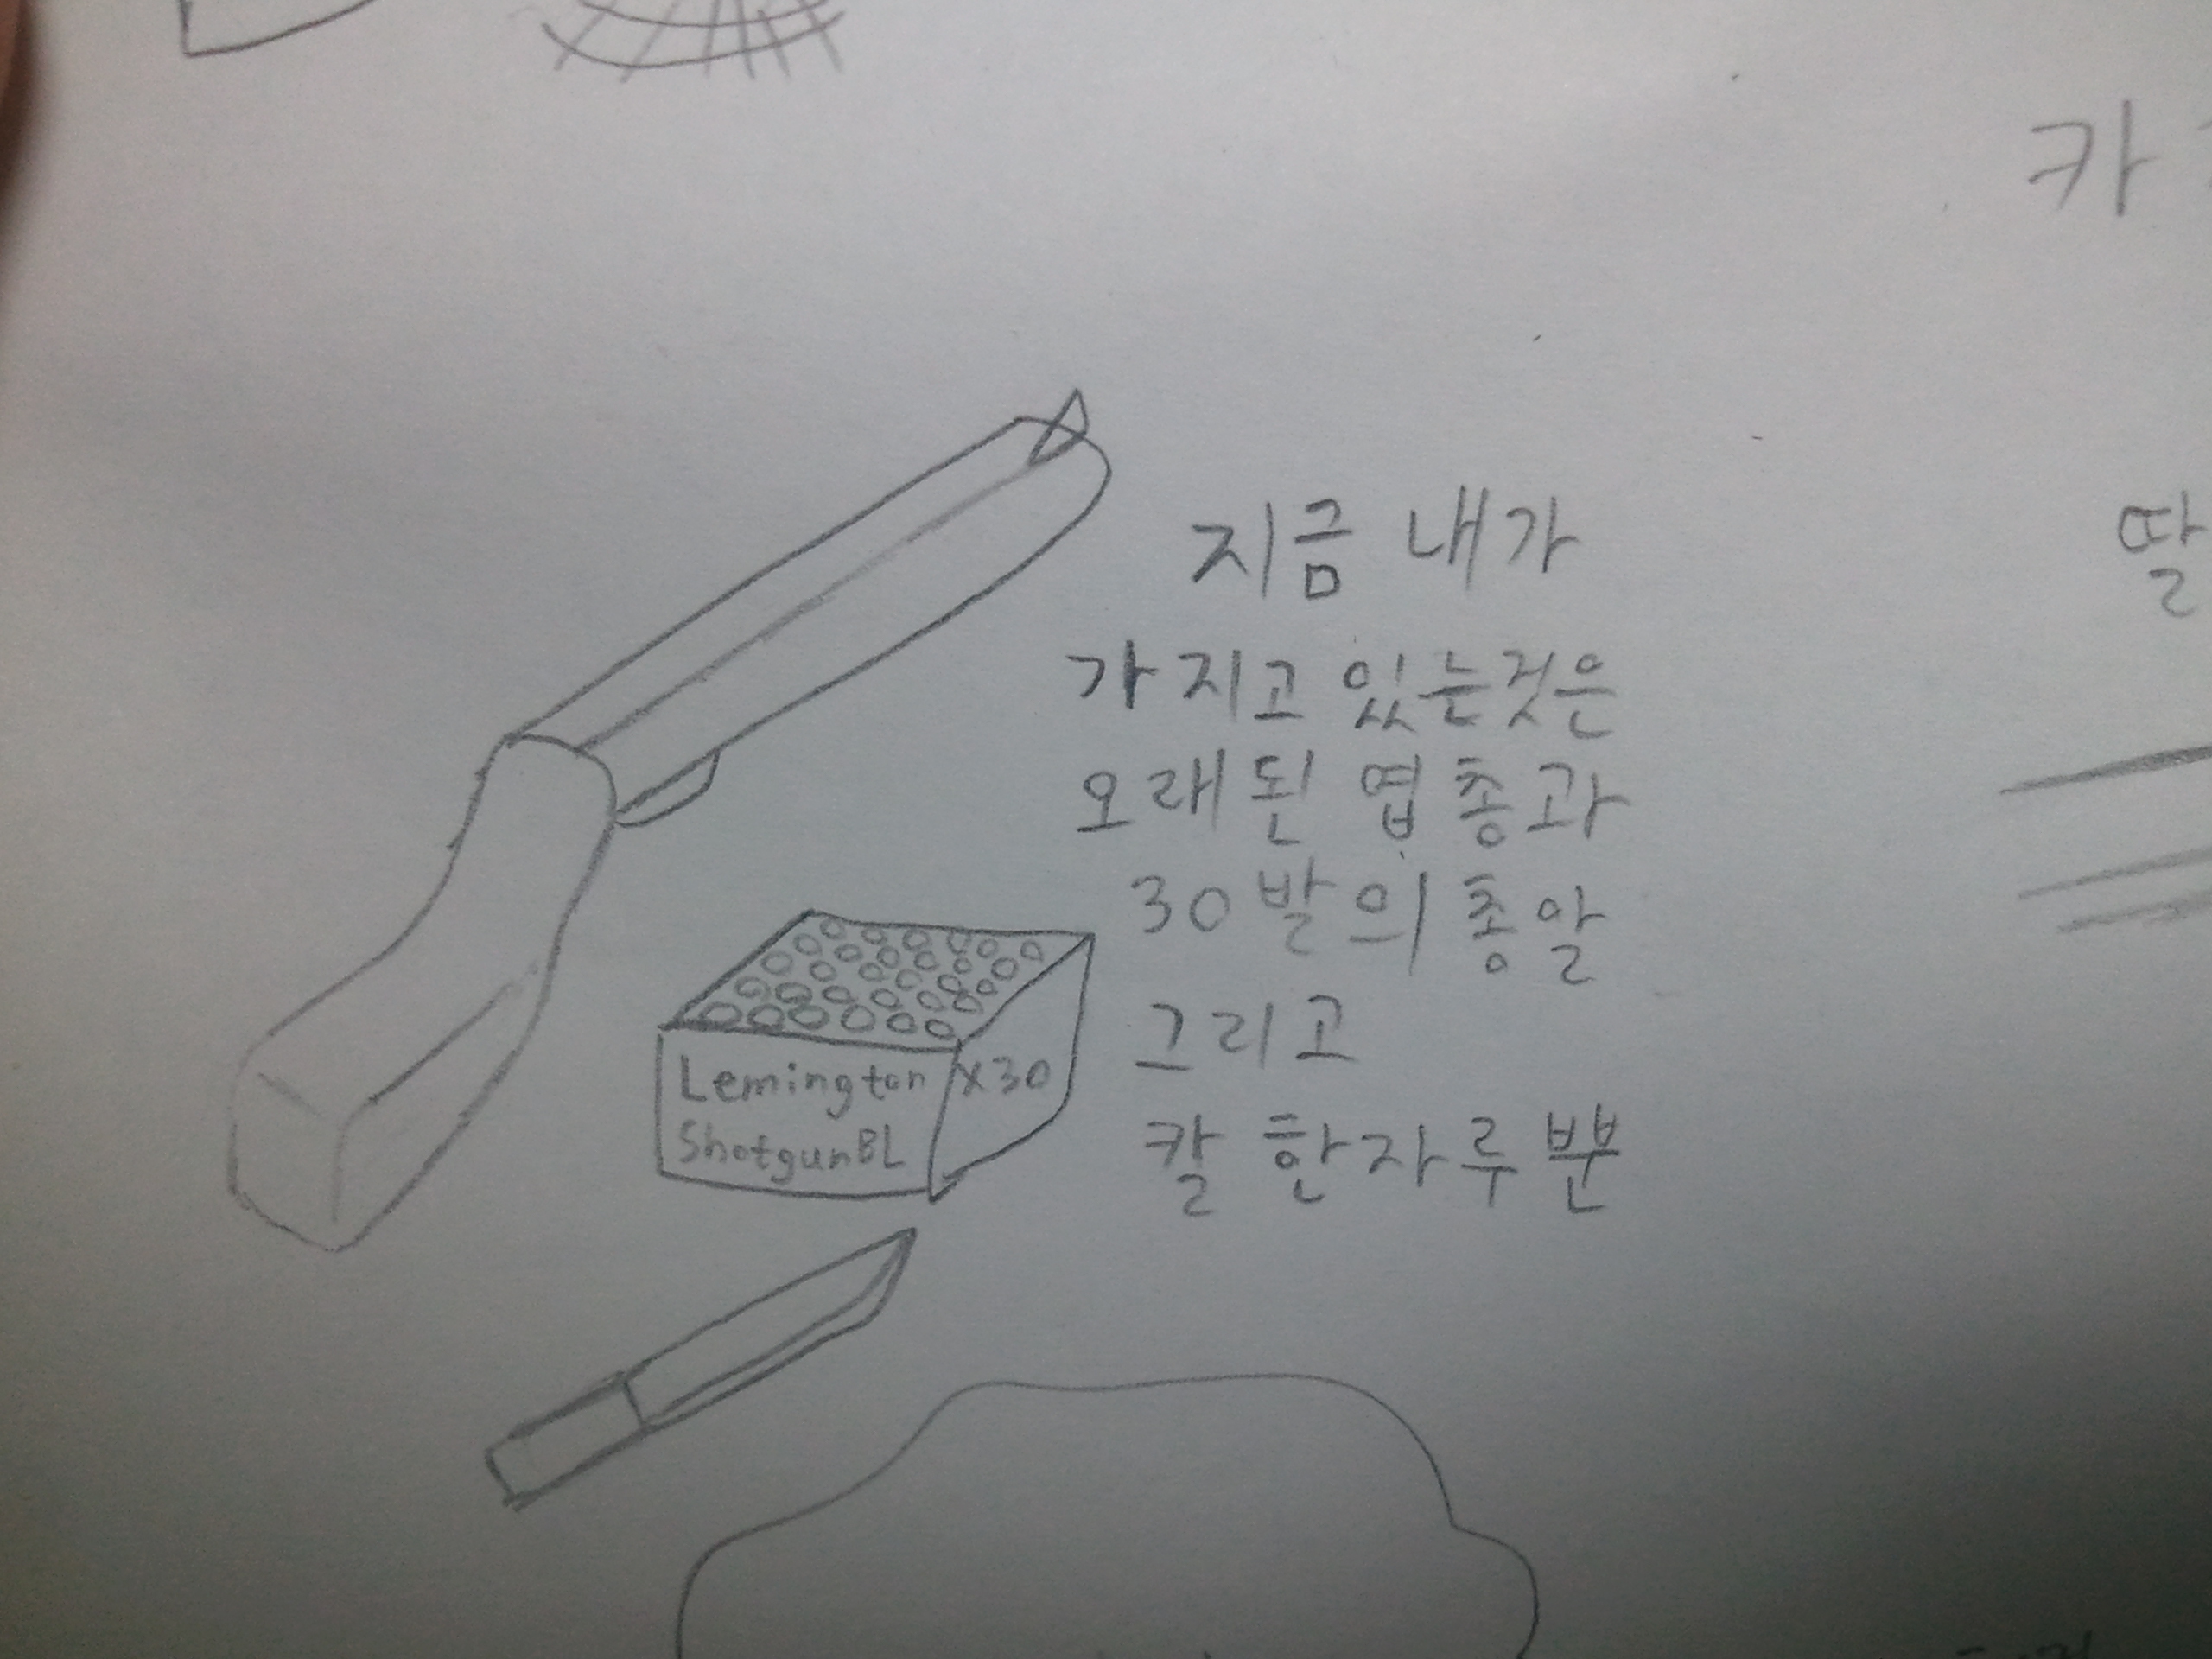 카
지금 내가
가지고 있는것은
오래된 엽총과
30발의 총알
그리고
칼 한자루뿐
딸
Lemington x30
ShotgunBL